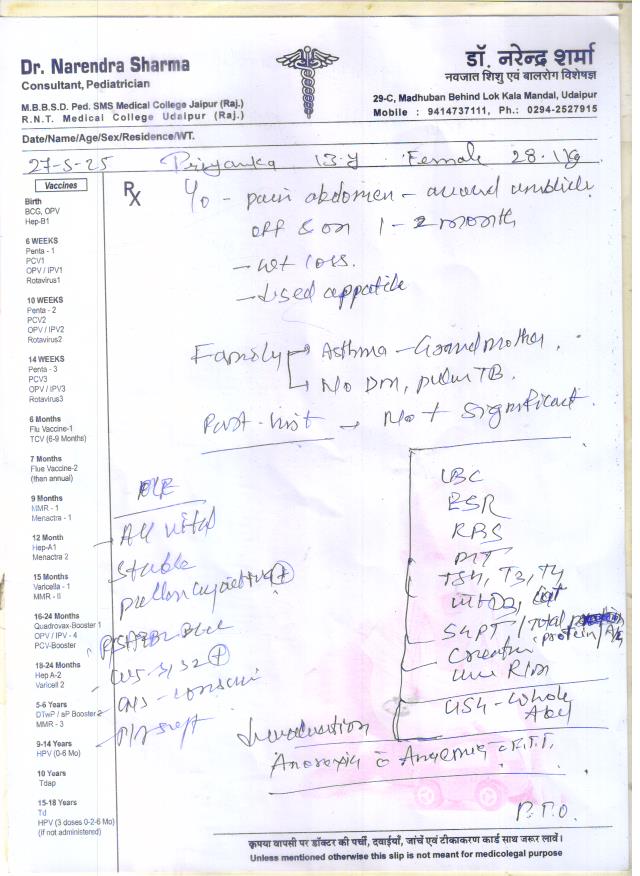 Dr. Narendra Sharma
Consultant, Pediatrician
M.B.B.S.D. Ped. SMS Medical College Jaipur (Raj.)
R.N.T. Medical College Udaipur (Raj.)
डॉ. नरेन्द्र शर्मा
नवजात शिशु एवं बालरोग विशेषज्ञ
29-C, Madhuban Behind Lok Kala Mandal, Udaipur
Mobile : 9414737111, Ph.: 0294-2527915
Date/Name/Age/Sex/Residence/WT.
27-5-25 Priyanka 13y Female 28.1kg
Vaccines
Birth
BCG, OPV
Hep-B1
6 WEEKS
Penta - 1
PCV1
OPV / IPV1
Rotavirus1
10 WEEKS
Penta - 2
PCV2
OPV / IPV2
Rotavirus2
14 WEEKS
Penta - 3
PCV3
OPV / IPV3
Rotavirus3
6 Months
Flu Vaccine-1
TCV (6-9 Months)
7 Months
Flue Vaccine-2
(then annual)
9 Months
MMR - 1
Menactra - 1
12 Month
Hep-A1
Menactra 2
15 Months
Varicella - 1
MMR - II
16-24 Months
Quadrovax-Booster 1
OPV / IPV - 4
PCV-Booster
18-24 Months
Hep A-2
Varicell 2
5-6 Years
DTwP / aP Booster 2
MMR - 3
9-14 Years
HPV (0-6 Mo)
10 Years
Tdap
15-18 Years
Td
HPV (3 doses 0-2-6 Mo)
(if not administered)
Rx
pain abdomen - around umblicle
off & on 1-2 month
- wt loss.
Family → Asthma - Grandmother.
→ No DM, pulm TB.
Past-hist → Not significant.
O/E
All vital
stable
CBC
ESR
RBS
TSH, T3, T4
SGPT / Total protein
Creatin
Urine R/M
USG - Whole
Abd
Anorexia c Anaemia
P.T.O.
कृपया वापसी पर डॉक्टर की पर्ची, दवाईयाँ, जांचें एवं टीकाकरण कार्ड साथ जरूर लावें।
Unless mentioned otherwise this slip is not meant for medicolegal purpose